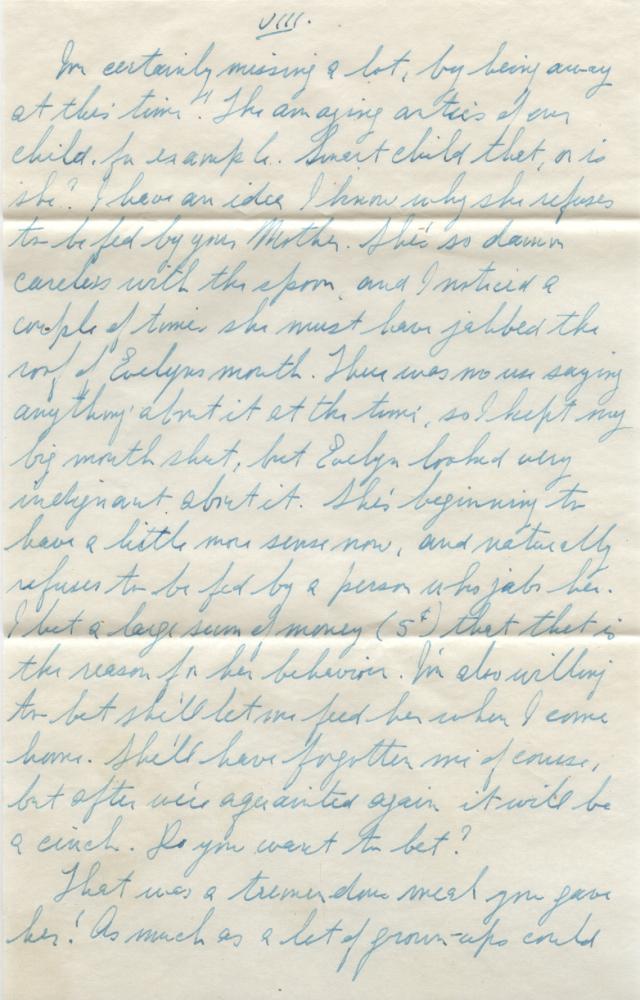 VIII.
I'm certainly missing a lot, by being away
at this time! The amazing antics of our
child, for example. Smart child that, or is
she? I have an idea I know why she refuses
to be fed by your Mother. She's so damn
careless with the spoon, and I noticed a
couple of times she must have jabbed the
roof of Evelyns mouth. There was no use saying
anything about it at the time, so I kept my
big mouth shut, but Evelyn looked very
indignant about it. She's beginning to
have a little more sense now, and naturally
refuses to be fed by a person who jabs her.
I bet a large sum of money (5¢) that that is
the reason for her behavior. I'm also willing
to bet she'll let me feed her when I come
home. She'll have forgotten me of course,
but after we're aquainted again it will be
a cinch. Do you want to bet?
That was a tremendous meal you gave
her! As much as a lot of grown-ups could